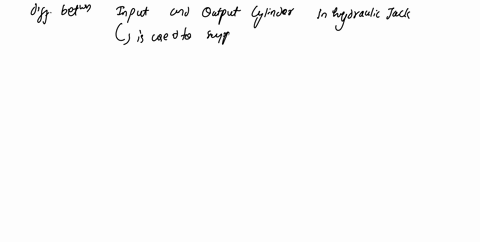 diff. betwn Input and Output Cylinder In hydraulic Jack
(,) is used to supp